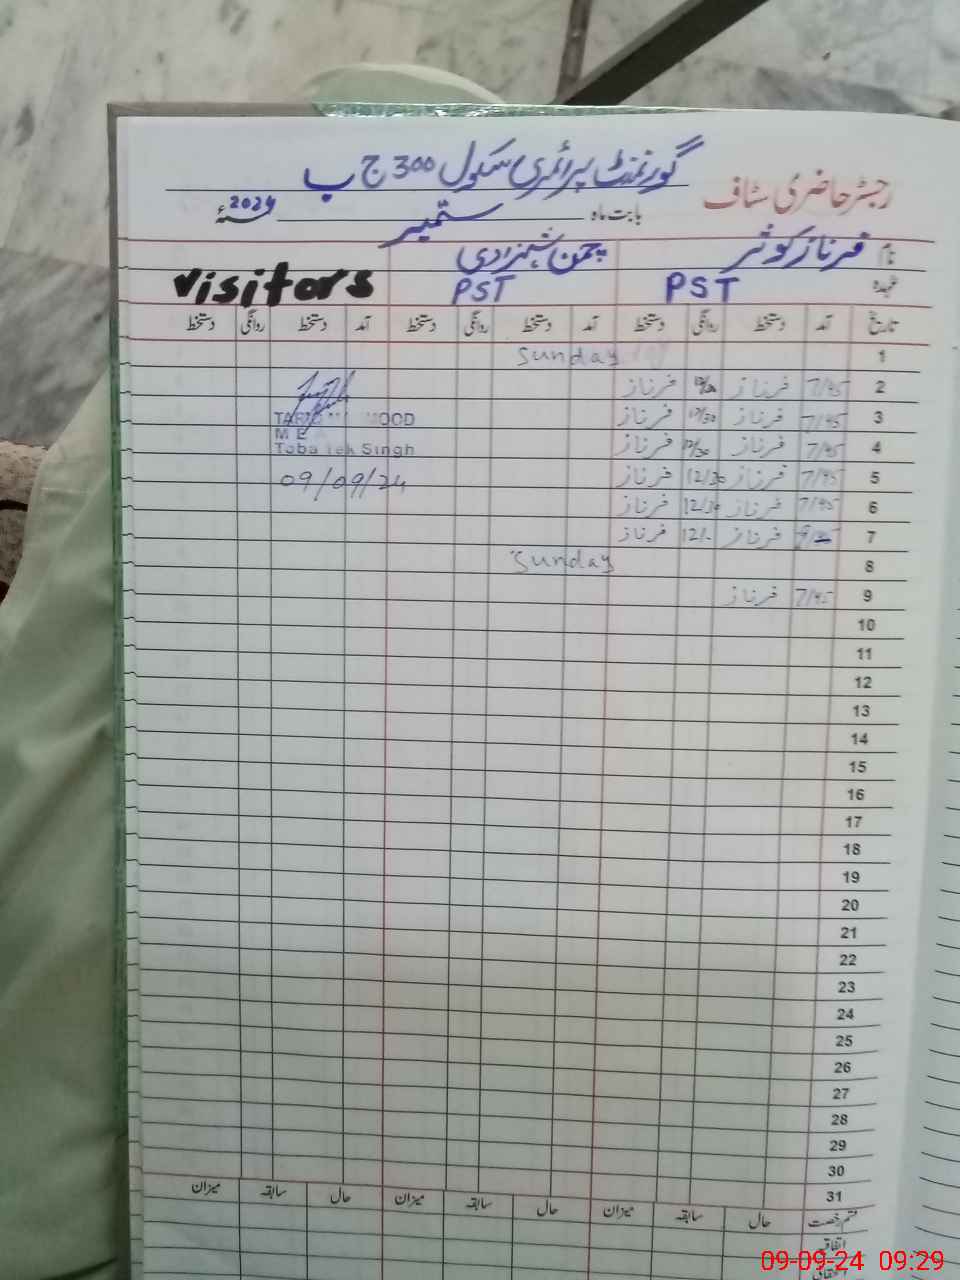 گورنمنٹ پرائمری سکول 300 ج ب
رجسٹر حاضری سٹاف
بابت ماہ ستمبر 2024 سنہء
نام فرناز کوثر چمن شہزادی
عہدہ PST PST visitors
تاریخ آمد دستخط روانگی دستخط آمد دستخط روانگی دستخط آمد دستخط روانگی دستخط
1 Sunday
2 7/45 فرناز فرناز
3 7/45 فرناز 12/30 فرناز TARIQ MOOD
4 7/45 فرناز 12/30 فرناز Toba Tek Singh
5 7/45 فرناز 12/30 فرناز 09/09/24
6 7/45 فرناز 12/30 فرناز
7 فرناز 12/- فرناز
8 Sunday
9 7/45 فرناز
10
11
12
13
14
15
16
17
18
19
20
21
22
23
24
25
26
27
28
29
30
31
قسم رخصت حال سابقہ میزان حال سابقہ میزان حال سابقہ میزان
اتفاقیہ
09-09-24 09:29